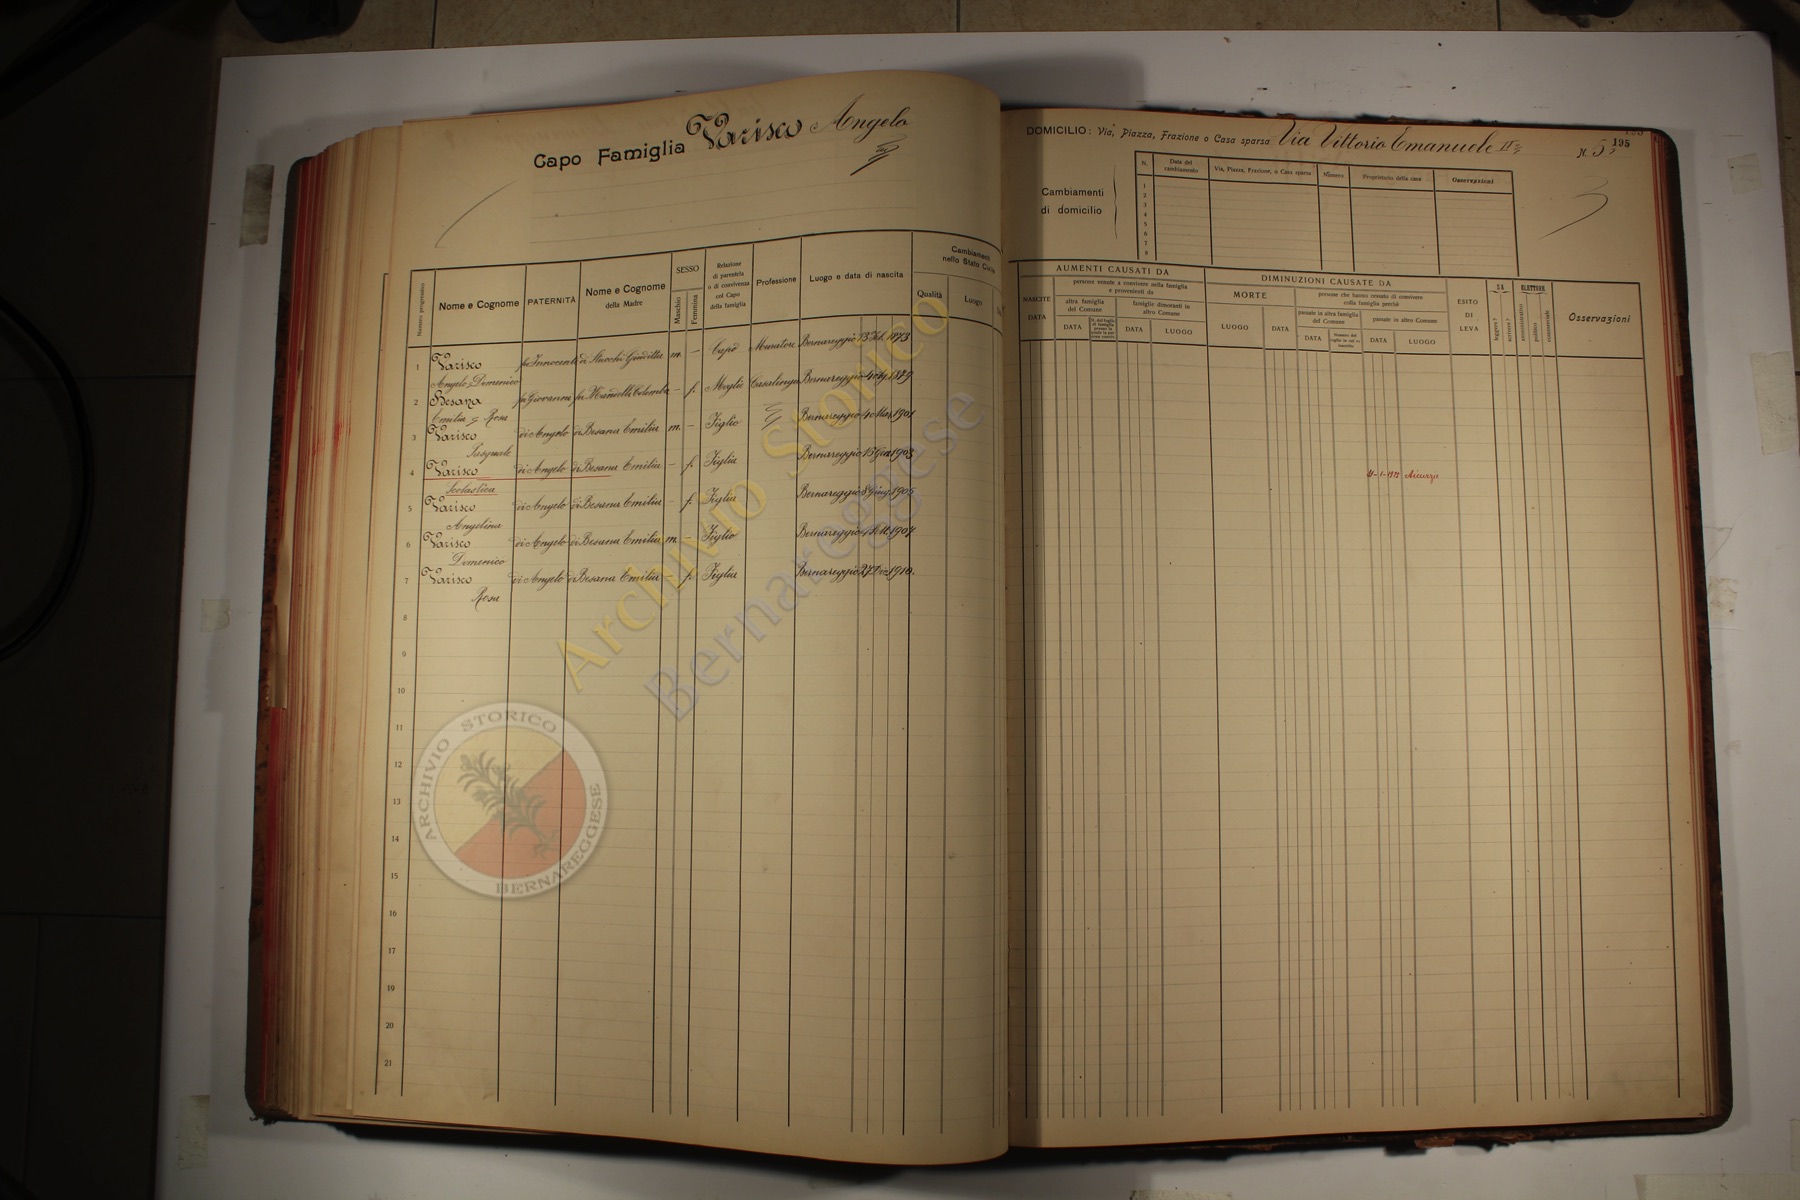 Capo Famiglia Varisco Angelo
Numero progressivo
Nome e Cognome
PATERNITÀ
Nome e Cognome
della Madre
SESSO
Maschio
Femmina
Relazione
di parentela
o di convivenza
col Capo
della famiglia
Professione
Luogo e data di nascita
Cambiamenti
nello Stato Civile
Qualità
Luogo
1 Varisco fu Innocente di Stucchi Giuditta m. – Capo Muratore Bernareggio 13 Feb. 1873
Angelo Domenico
2 Besana fu Giovanni fu Mandelli Colomba – f. Moglie Casalinga Bernareggio 1879
Emilia Rosa
3 Varisco di Angelo di Besana Emilia m. – Figlio Bernareggio 4 Mar. 1901
Pasquale
4 Varisco di Angelo di Besana Emilia – f. Figlia Bernareggio 15 1903
Scolastica
5 Varisco di Angelo di Besana Emilia – f. Figlia Bernareggio 8 Giug. 1905
Angelina
6 Varisco di Angelo di Besana Emilia m. – Figlio Bernareggio 1907
Domenico
7 Varisco di Angelo di Besana Emilia – f. Figlia Bernareggio 27 Dic. 1910.
Rosa
8
9
10
11
12
13
14
15
16
17
18
19
20
21
Archivio Storico
Bernareggese
ARCHIVIO STORICO
BERNAREGGESE
DOMICILIO: Via, Piazza, Frazione o Casa sparsa Via Vittorio Emanuele II N. 5
195
Cambiamenti
di domicilio
N.
Data del
cambiamento
Via, Piazza, Frazione, o Casa sparsa
Numero
Proprietario della casa
Osservazioni
1
2
3
4
5
6
7
8
AUMENTI CAUSATI DA
NASCITE
DATA
persone venute a convivere nella famiglia
e provenienti da
altra famiglia
del Comune
famiglie dimoranti in
altro Comune
DATA
DATA
LUOGO
DIMINUZIONI CAUSATE DA
MORTE
LUOGO
DATA
persone che hanno cessato di convivere
colla famiglia perchè
passate in altra famiglia
del Comune
passate in altro Comune
DATA
DATA
LUOGO
ESITO
DI
LEVA
SA
leggere?
scrivere?
ELETTORE
amministrativo
politico
commerciale
Osservazioni
Aicurzio